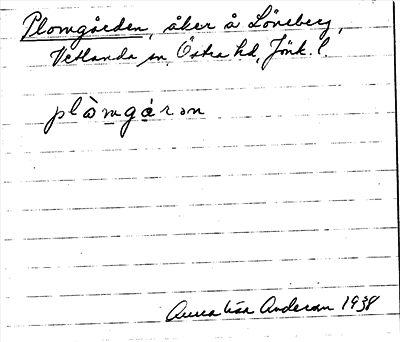 Plomgården, åker å Löneberg,
Vetlanda sn, Östra hd, Jönk. l.
plòmgárən
Anna Lisa Anderson 1938